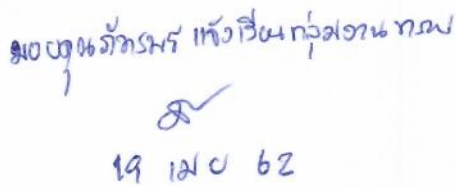 มอบคุณภัทรพร แจ้งเวียนกลุ่มงานทราบ
19 เมย 62